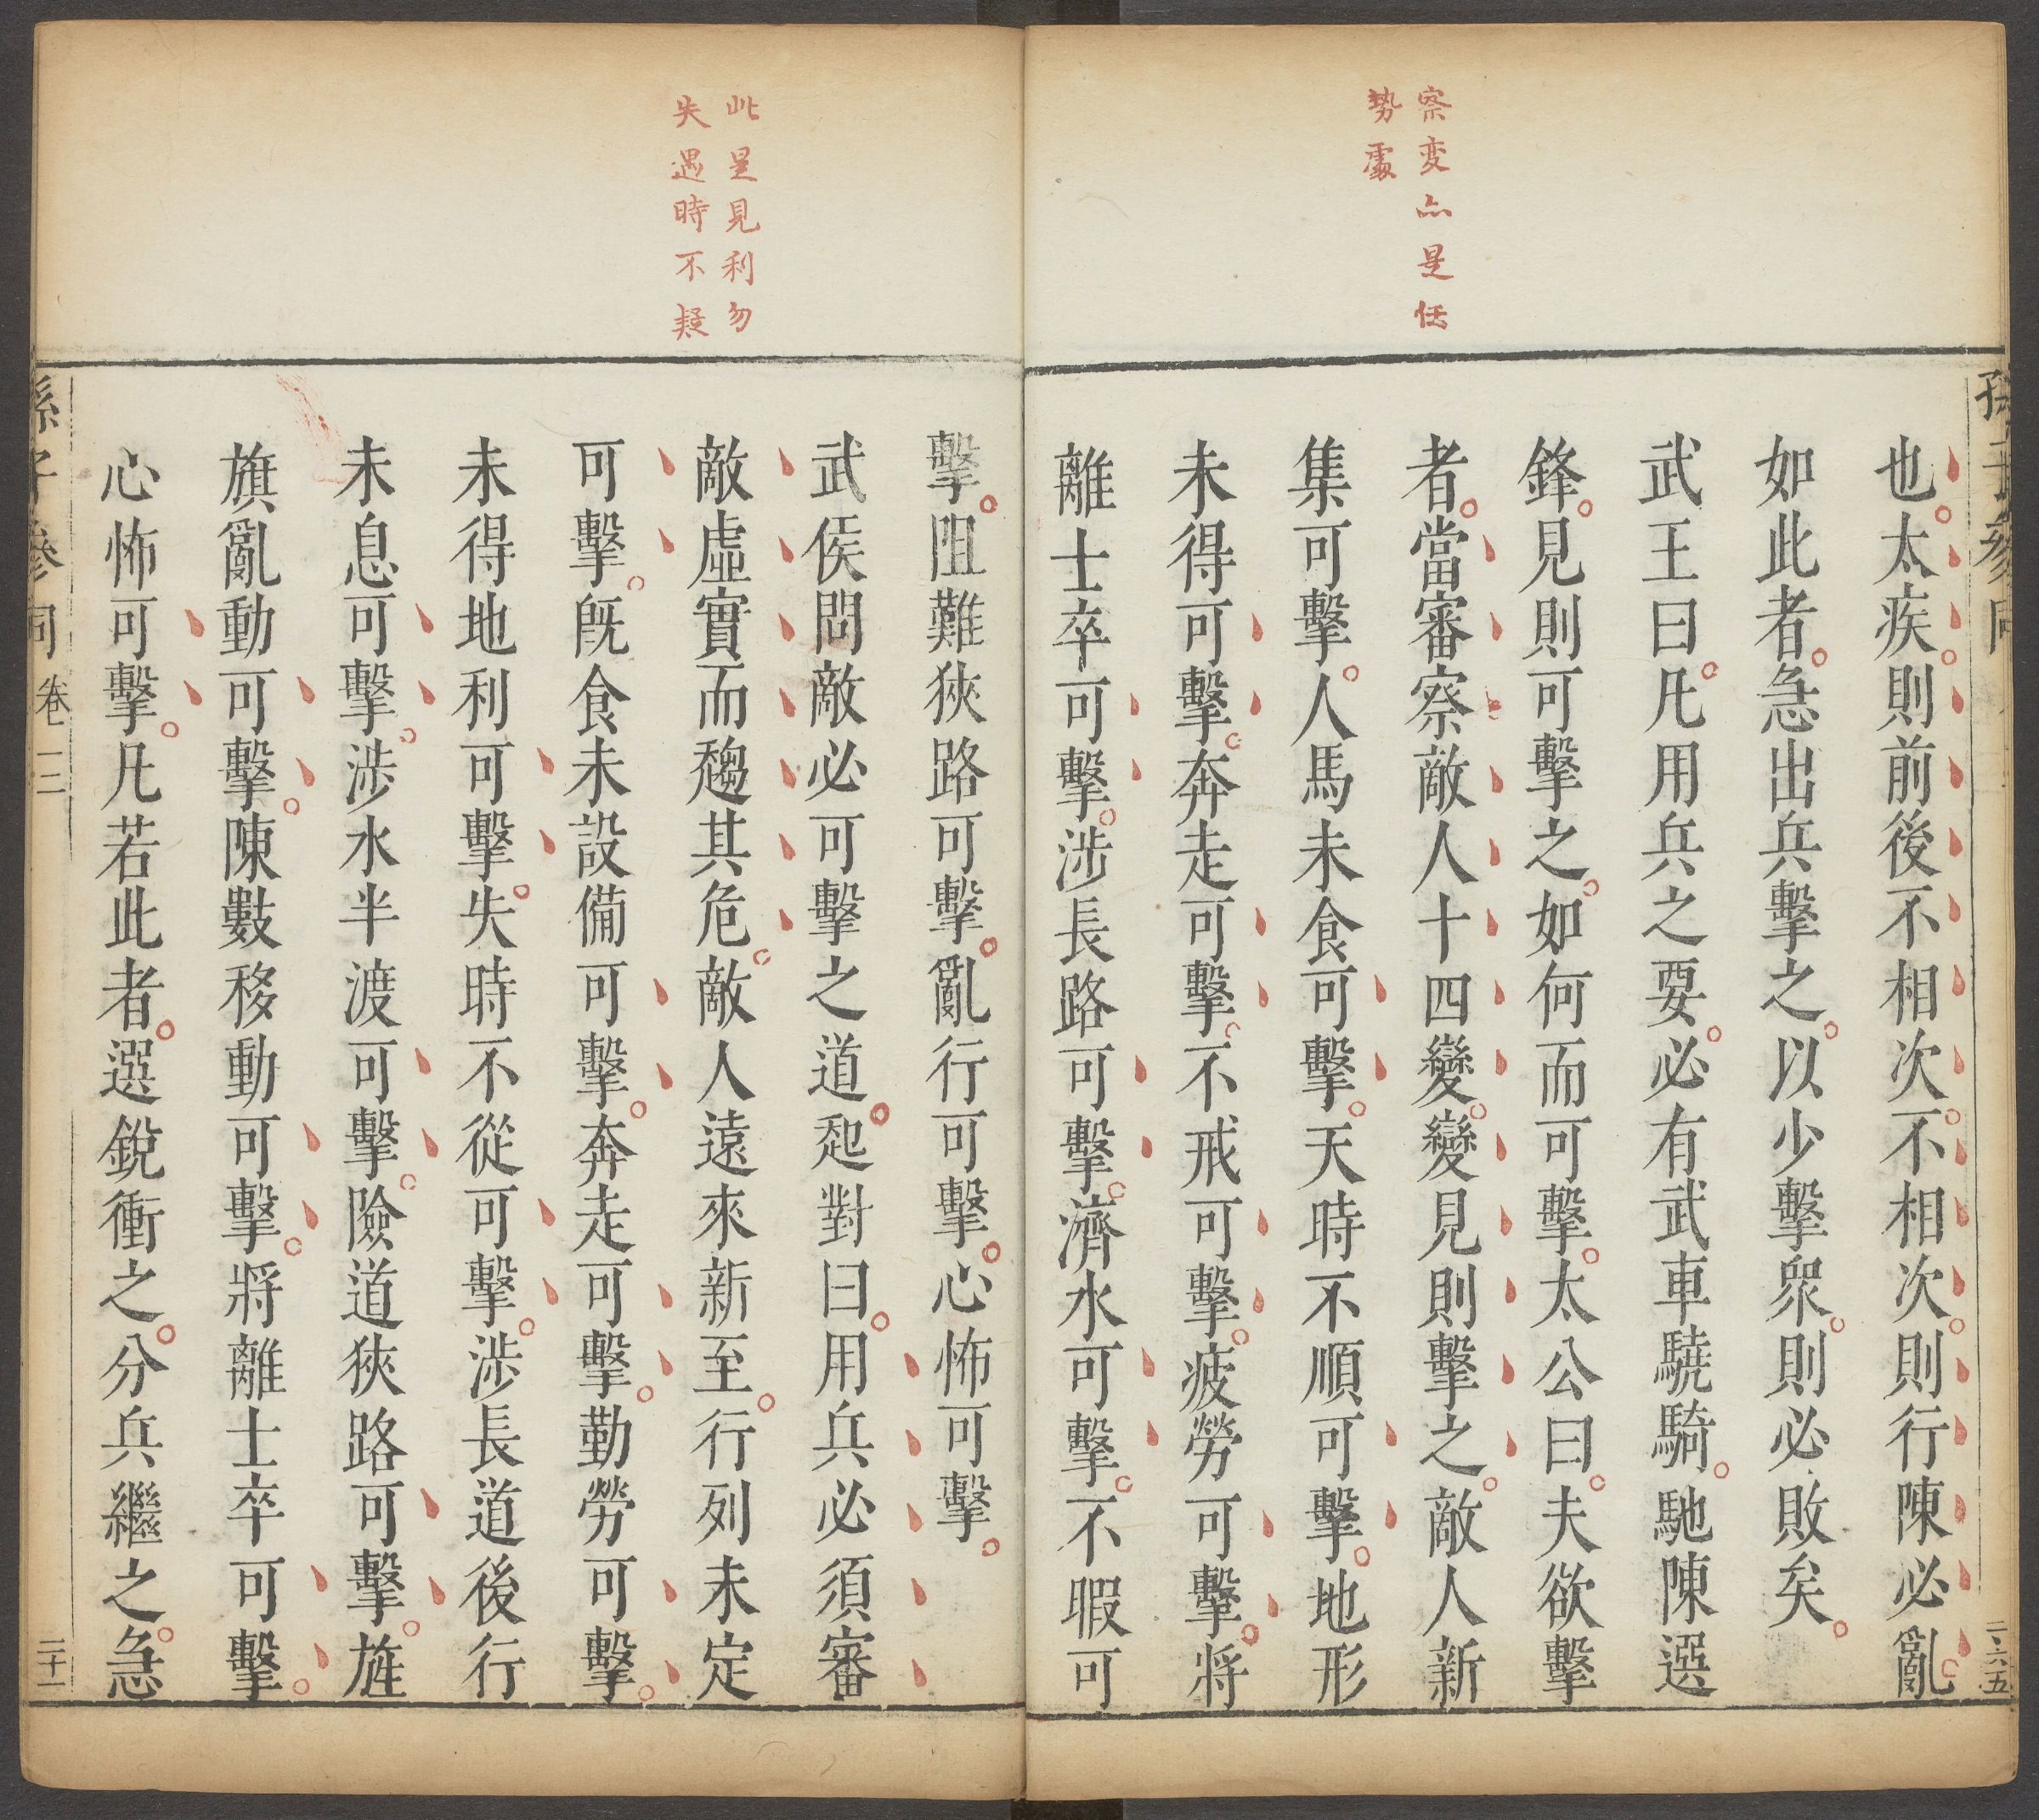 察変亦是任
勢處
也。太疾。則前後不相次。不相次。則行陳必亂。
如此者。急出兵擊之。以少擊衆。則必敗矣。
武王曰。凡用兵之要。必有武車驍騎。馳陳選
鋒。見則可擊之。如何而可擊。太公曰。夫欲擊
者。當審察敵人十四變。變見則擊之。敵人新
集可擊。人馬未食可擊。天時不順可擊。地形
未得可擊。奔走可擊。不戒可擊。疲勞可擊。將
離士卒可擊。涉長路可擊。濟水可擊。不暇可
此是見利勿
失遇時不疑
擊。阻難狹路可擊。亂行可擊。心怖可擊。
武侯問敵必可擊之道。起對曰。用兵必須審
敵虛實而趨其危。敵人遠來新至。行列未定
可擊。旣食未設備可擊。奔走可擊。勤勞可擊。
未得地利可擊。失時不從可擊。涉長道後行
未息可擊。涉水半渡可擊。險道狹路可擊。旌
旗亂動可擊。陳數移動可擊。將離士卒可擊。
心怖可擊。凡若此者。選銳衝之。分兵繼之。急
孫子參同 卷二 二十一